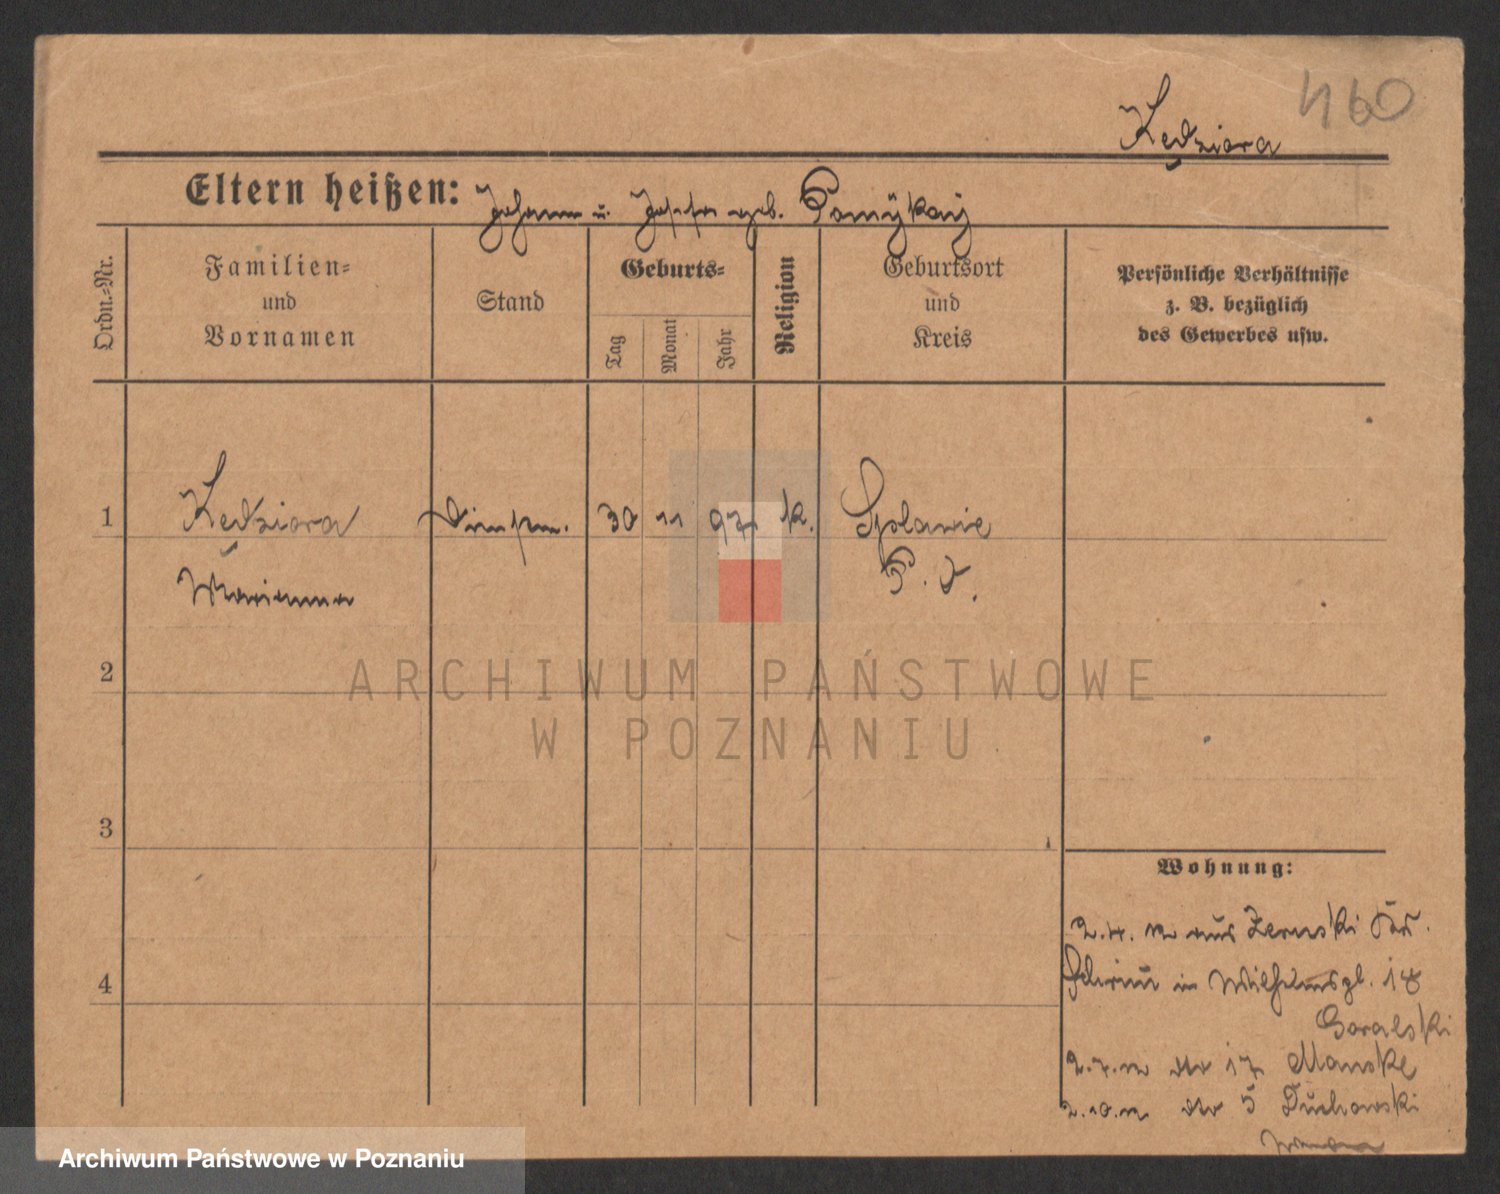 460
Kędziora
Eltern heißen: Johann u. Josefa geb. Pomykaj
Ordn.=Nr.
Familien=
und
Vornamen
Stand
Geburts=
Tag
Monat
Jahr
Religion
Geburtsort
und
Kreis
Persönliche Verhältnisse
z. B. bezüglich
des Gewerbes usw.
1 Kędziora 30 11 97 k. Splawie
Marianna P. O.
2
3
4
ARCHIWUM PAŃSTWOWE
W POZNANIU
Wohnung:
2.4. aus
in Wilhelmspl. 18
Goralski
17 Manske
5 Duchowski
Archiwum Państwowe w Poznaniu